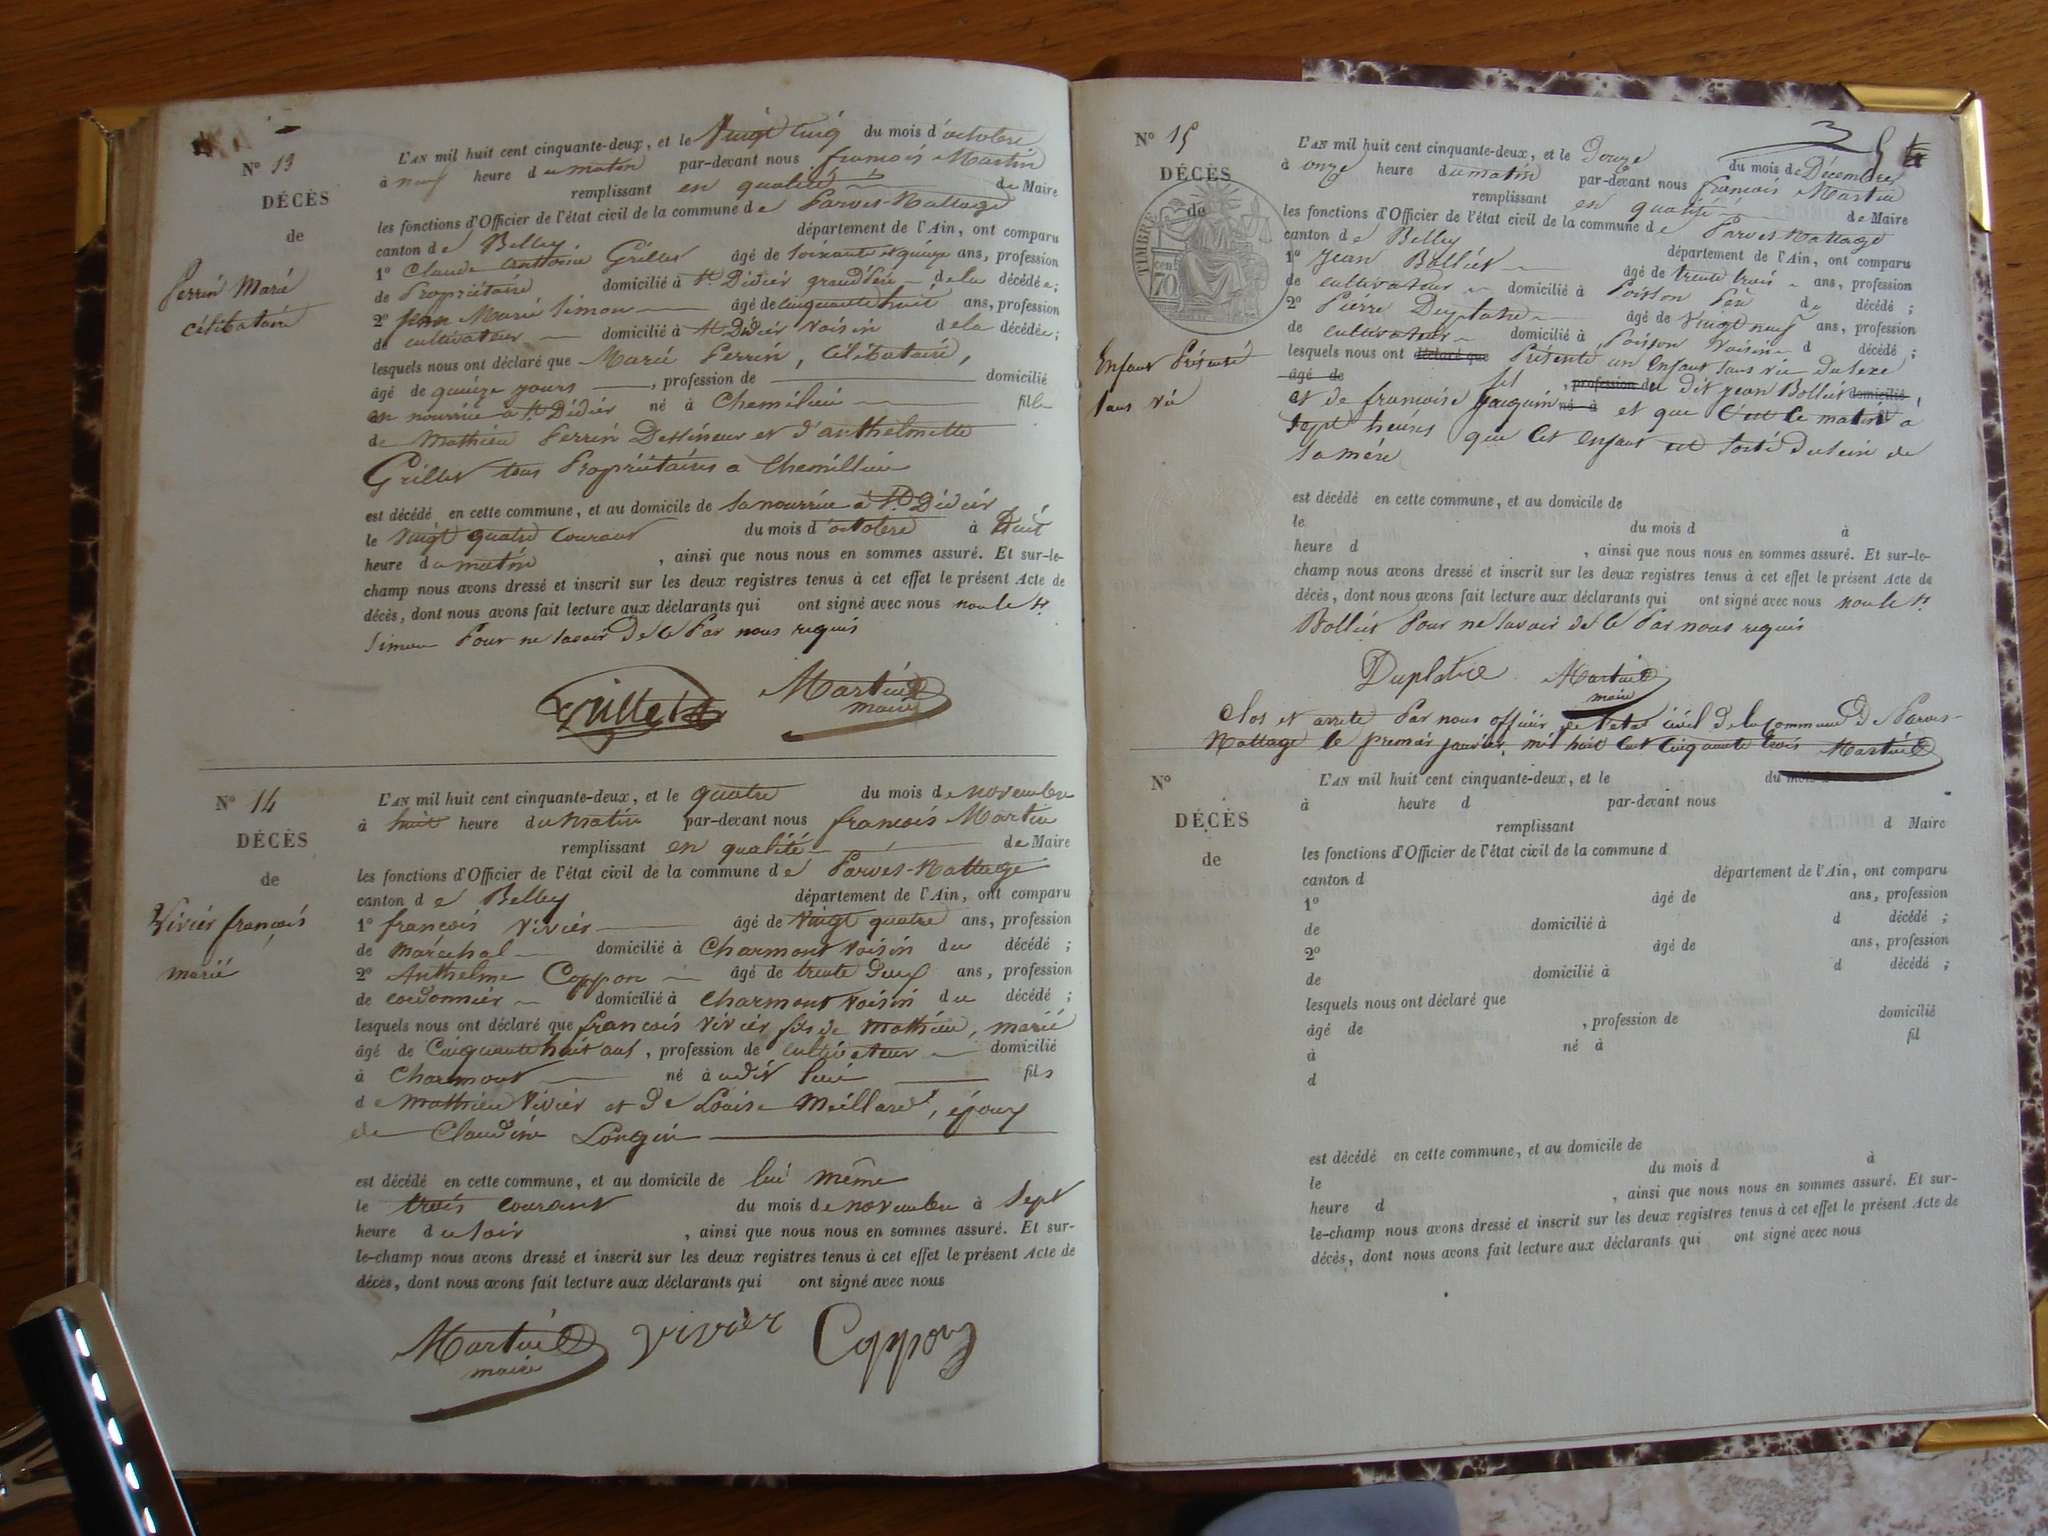 N° 13
DÉCÈS
de
Perrin Marie
célibataire
L'AN mil huit cent cinquante-deux, et le Vingt cinq du mois d'octobre
à neuf heure du matin par-devant nous francois Martin
remplissant en qualité de Maire
les fonctions d'Officier de l'état civil de la commune de Parves-Nattage
canton de Belley département de l'Ain, ont comparu
1° Claude Anthoine Grillet âgé de soixante et quinze ans, profession
de Propriétaire domicilié à St Didier grand Père de la décédée;
2° jean Marie Simon âgé de cinquante huit ans, profession
de cultivateur domicilié à St Didier voisin de la décédée;
lesquels nous ont déclaré que Marie Perrin, célibataire,
âgé de quinze jours, profession de domicilié
en nourrice à St Didier né à Chemilieu fille
de Mathieu Perrin Dessineur et d'anthelmette
Grillet tous Propriétaires a Chemillieu
est décédé en cette commune, et au domicile de sa nourrice a St Didier
le vingt quatre courant du mois d'octobre à huit
heure du matin, ainsi que nous nous en sommes assuré. Et sur-le-
champ nous avons dressé et inscrit sur les deux registres tenus à cet effet le présent Acte de
décès, dont nous avons fait lecture aux déclarants qui ont signé avec nous non le Sr
Simon Pour ne savoir de ce Par nous requis
Grillet Martin
maire
N° 14
DÉCÈS
de
Vivier françois
marié
L'AN mil huit cent cinquante-deux, et le quatre du mois de novembre
à huit heure du matin par-devant nous francois Martin
remplissant en qualité de Maire
les fonctions d'Officier de l'état civil de la commune de Parves-Nattage
canton de Belley département de l'Ain, ont comparu
1° francois Vivier âgé de vingt quatre ans, profession
de maréchal domicilié à Charmont voisin du décédé;
2° Anthelme Coppon âgé de trente deux ans, profession
de cordonnier domicilié à Charmont voisin du décédé;
lesquels nous ont déclaré que francois Vivier fils de Mathieu, marié
âgé de Cinquante huit ans, profession de cultivateur domicilié
à Charmont né à udit lieu fils
de Mathieu Vivier et de Louise Meillard, époux
de Claudine Longin
est décédé en cette commune, et au domicile de lui même
le trois courant du mois de novembre à sept
heure du soir, ainsi que nous nous en sommes assuré. Et sur-
le-champ nous avons dressé et inscrit sur les deux registres tenus à cet effet le présent Acte de
décès, dont nous avons fait lecture aux déclarants qui ont signé avec nous
Martin vivier Coppon
maire
N° 15
DÉCÈS
de
TIMBRE
70 cent
Enfant Présenté
sans vie
L'AN mil huit cent cinquante-deux, et le Douze du mois de Décembre
à onze heure du matin par-devant nous françois Martin
remplissant en qualité de Maire
les fonctions d'Officier de l'état civil de la commune de Parves-Nattage
canton de Belley département de l'Ain, ont comparu
1° Jean Bolliet âgé de trente trois ans, profession
de cultivateur domicilié à Poisson Père du décédé;
2° Pierre Duplatre âgé de vingt neuf ans, profession
de cultivateur domicilié à Poisson Voisin d décédé;
lesquels nous ont déclaré que Présenté un enfant sans vie du sexe
âgé de , profession de du dit jean Bolliet domicilié,
et de francoise Jacquin né à et que c'est ce matin à
sept heures que cet enfant est sorti du sein de
sa mère
est décédé en cette commune, et au domicile de
le du mois d à
heure d , ainsi que nous nous en sommes assuré. Et sur-le-
champ nous avons dressé et inscrit sur les deux registres tenus à cet effet le présent Acte de
décès, dont nous avons fait lecture aux déclarants qui ont signé avec nous non le Sr
Bolliet Pour ne savoir de ce Par nous requis
Duplatre Martin
maire
Clos et arrêté Par nous officier de l'etat civil de la Commune De Parves-
Nattage le premier janvier mil huit cent cinquante trois Martin
N° L'AN mil huit cent cinquante-deux, et le du mois d
à heure d par-devant nous
DÉCÈS
remplissant d Maire
de
les fonctions d'Officier de l'état civil de la commune d
canton d département de l'Ain, ont comparu
1° âgé de ans, profession
de domicilié à d décédé;
2° âgé de ans, profession
de domicilié à d décédé;
lesquels nous ont déclaré que
âgé de , profession de domicilié
à né à fil
d
est décédé en cette commune, et au domicile de
le du mois d à
heure d , ainsi que nous nous en sommes assuré. Et sur-
le-champ nous avons dressé et inscrit sur les deux registres tenus à cet effet le présent Acte de
décès, dont nous avons fait lecture aux déclarants qui ont signé avec nous